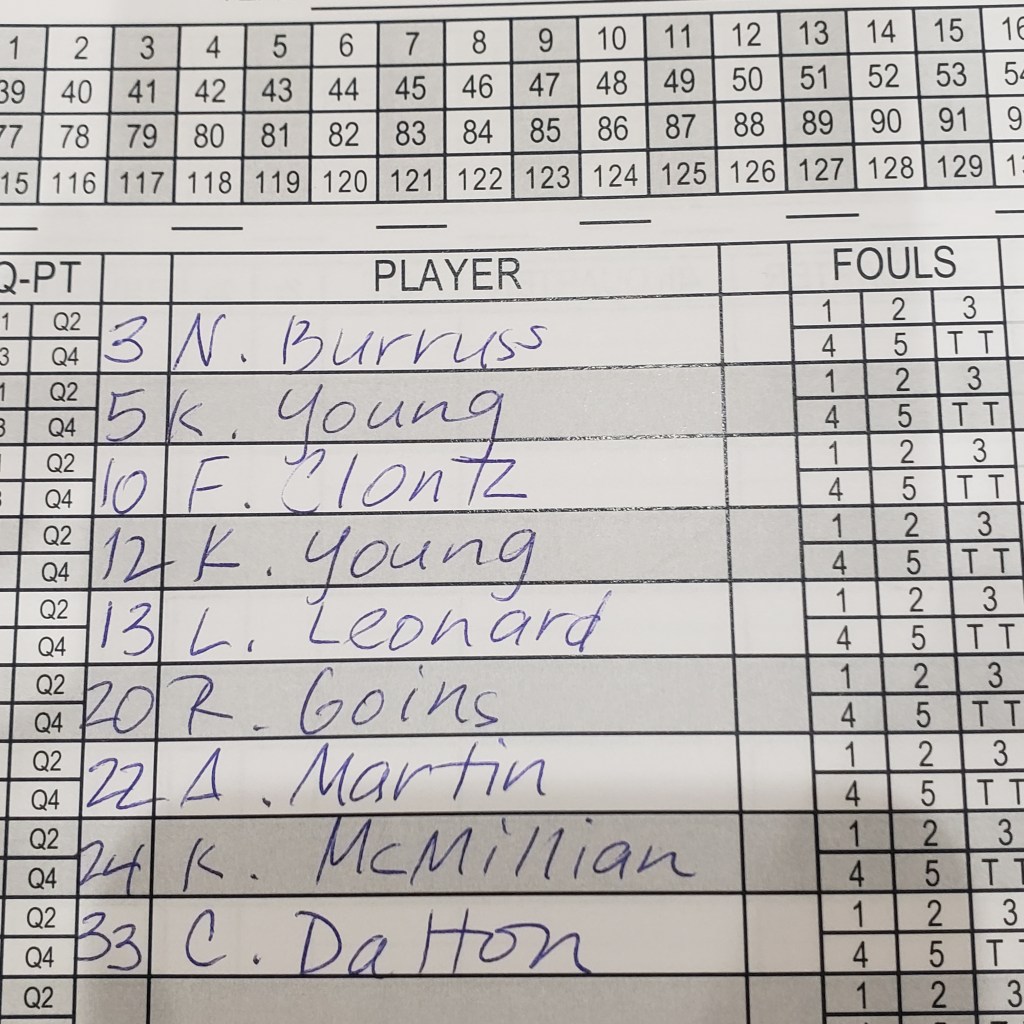 1 2 3 4 5 6 7 8 9 10 11 12 13 14 15 16
39 40 41 42 43 44 45 46 47 48 49 50 51 52 53 54
77 78 79 80 81 82 83 84 85 86 87 88 89 90 91 9
15 116 117 118 119 120 121 122 123 124 125 126 127 128 129 1
Q-PT PLAYER FOULS
1 Q2 1 2 3
3 Q4 3 N. Burruss 4 5 T T
1 Q2 1 2 3
3 Q4 5 K. Young 4 5 T T
Q2 1 2 3
Q4 10 F. Clontz 4 5 T T
Q2 1 2 3
Q4 12 K. Young 4 5 T T
Q2 1 2 3
Q4 13 L. Leonard 4 5 T T
Q2 1 2 3
Q4 20 R. Goins 4 5 T T
Q2 1 2 3
Q4 22 A. Martin 4 5 T T
Q2 1 2 3
Q4 24 K. McMillian 4 5 T T
Q2 1 2 3
Q4 33 C. Dalton 4 5 T
Q2 1 2 3